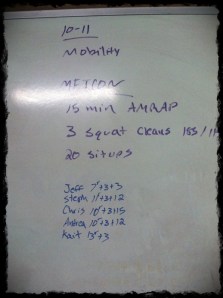 10-11
Mobility
METCON
15 min AMRAP
3 squat cleans 185/11
20 situps
Jeff 7+3+3
Steph 11+3+12
Chris 10+3+15
Andrea 10+3+12
Kait 13+3